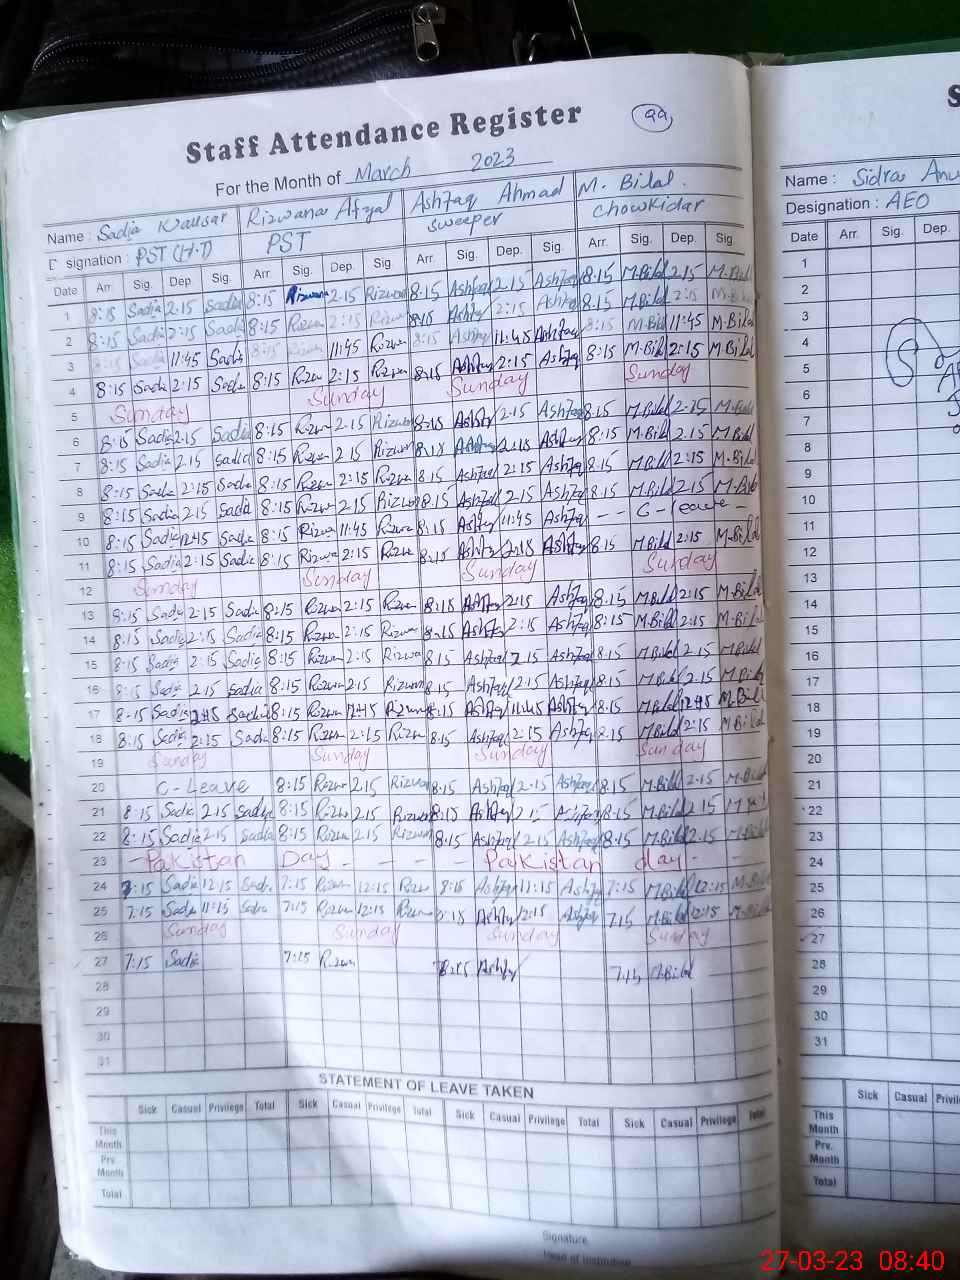 Staff Attendance Register
99
For the Month of March 2023
Name: Sadia Kausar Rizwana Afzal Ashfaq Ahmad M. Bilal.
Designation: PST (H.T) PST Sweeper Chowkidar
Date Arr. Sig. Dep. Sig. Arr. Sig. Dep. Sig. Arr. Sig. Dep. Sig. Arr. Sig. Dep. Sig.
1 8:15 Sadia 2.15 Sadia 8:15 Rizwana 2.15 Rizwan 8.15 Ashfaq 2.15 Ashfaq 8.15 M.Bilal 2.15 M.Bilal
2 8:15 Sadia 2:15 Sadia 8:15 Rizwan 2:15 Rizwan 8:15 Ashfaq 2:15 Ashfaq 8.15 M.Bilal 2:15 M.Bilal
3 8:15 Sadia 11:45 Sadia 8:15 11:45 Rizwan 8:15 Ashfaq 11:45 Ashfaq 8:15 M.Bil 11:45 M.Bilal
4 8:15 Sadia 2:15 Sadia 8:15 Rizw 2:15 Rizwan 8:15 Ashfaq 2:15 Ashfaq 8:15 M.Bil 2:15 M.Bilal
5 Sunday Sunday Sunday Sunday
6 8:15 Sadia 2.15 Sadia 8:15 Rizwn 2.15 Rizwan 8:15 Ashfaq 2.15 Ashfaq 8.15 M.Bilal 2.15 M.Bilal
7 8:15 Sadia 2.15 Sadia 8:15 Rizwan 2.15 Rizwan 8:15 2:15 Ashfaq 8:15 M.Bil 2.15 M.Bilal
8 8:15 Sadia 2:15 Sadia 8:15 Rizwan 2:15 Rizwan 8.15 Ashfaq 2:15 Ashfaq 8.15 M.Bilal 2:15 M.Bilal
9 8:15 Sadia 2.15 Sadia 8:15 Rizwa 2.15 Rizwan 8.15 Ashfaq 2.15 Ashfaq 8.15 M.Bilal 2.15 M.Bilal
10 8:15 Sadia 12:45 Sadia 8:15 Rizwa 11:45 Rizwa 8:15 Ashfaq 11:45 Ashfaq - - C - leave -
11 8:15 Sadia 2:15 Sadia 8:15 Rizwa 2:15 Rizwa 8:15 Ashfaq 2:15 Ashfaq 8.15 M.Bilal 2:15 M.Bilal
12 Sunday Sunday Sunday Sunday
13 8:15 Sadia 2:15 Sadia 8:15 Rizwa 2:15 Rizwan 8:15 Ashfaq 2:15 Ashfaq 8.15 M.Bilal 2.15 M.Bilal
14 8:15 Sadia 2:15 Sadia 8:15 Rizwan 2:15 Rizwan 8:15 Ashfaq 2:15 Ashfaq 8:15 M.Bilal 2:15 M.Bilal
15 8:15 Sadia 2:15 Sadia 8:15 Rizwan 2:15 Rizwa 8.15 Ashfaq 2.15 Ashfaq 8:15 M.Bilal 2.15 M.Bilal
16 8:15 Sadia 2.15 Sadia 8:15 Rizwan 2:15 Rizwan 8.15 Ashfaq 2.15 Ashfaq 8.15 M.Bilal 2.15 M.Bilal
17 8:15 Sadia 12:45 Sadia 8:15 Rizwan 12:45 Rizwan 8:15 Ashfaq 11:45 Ashfaq 8:15 M.Bilal 12:45 M.Bilal
18 8:15 Sadia 2:15 Sadia 8:15 Rizwan 2:15 Rizwn 8:15 Ashfaq 2:15 Ashfaq 8.15 M.Bilal 2:15 M.Bilal
19 Sunday Sunday Sunday Sunday
20 C-Leave 8:15 Rizwan 2:15 Rizwan 8.15 Ashfaq 2.15 Ashfaq 8.15 M.Bilal 2.15 M.Bilal
21 8:15 Sadia 2.15 Sadia 8:15 Rizwan 2.15 Rizwan 8:15 Ashfaq 2:15 Ashfaq 8.15 M.Bilal 2.15
22 8:15 Sadia 2.15 Sadia 8:15 Rizwan 2.15 Rizwan 8:15 Ashfaq 2.15 Ashfaq 8:15 M.Bilal 2.15 M.Bilal
23 - Pakistan Day - - - - Pakistan day - -
24 7:15 Sadia 12:15 Sadia 7:15 Rizwan 12:15 Rizw 8:15 Ashfaq 11:15 Ashfaq 7:15 M.Bilal 12:15 M.Bilal
25 7:15 Sadia 11:15 Sadia 7:15 Rizwan 12:15 Rizwan 8:15 Ashfaq 12:15 Ashfaq 7.15 M.Bilal 12:15 M.Bilal
26 Sunday Sunday Sunday Sunday
27 7:15 Sadia 7:15 Rizwan 8:15 Ashfaq 7.15 M.Bilal
28
29
30
31
STATEMENT OF LEAVE TAKEN
Sick Casual Privilege Total Sick Casual Privilege Total Sick Casual Privilege Total Sick Casual Privilege Total
This Month
Prv. Month
Total
Signature
Head of Institution
S
Name: Sidra Anw
Designation: AEO
Date Arr. Sig. Dep.
1
2
3
4
5
6
7
8
9
10
11
12
13
14
15
16
17
18
19
20
21
22
23
24
25
26
27
28
29
30
31
Sick Casual Privil
This Month
Prv. Month
Total
27-03-23 08:40